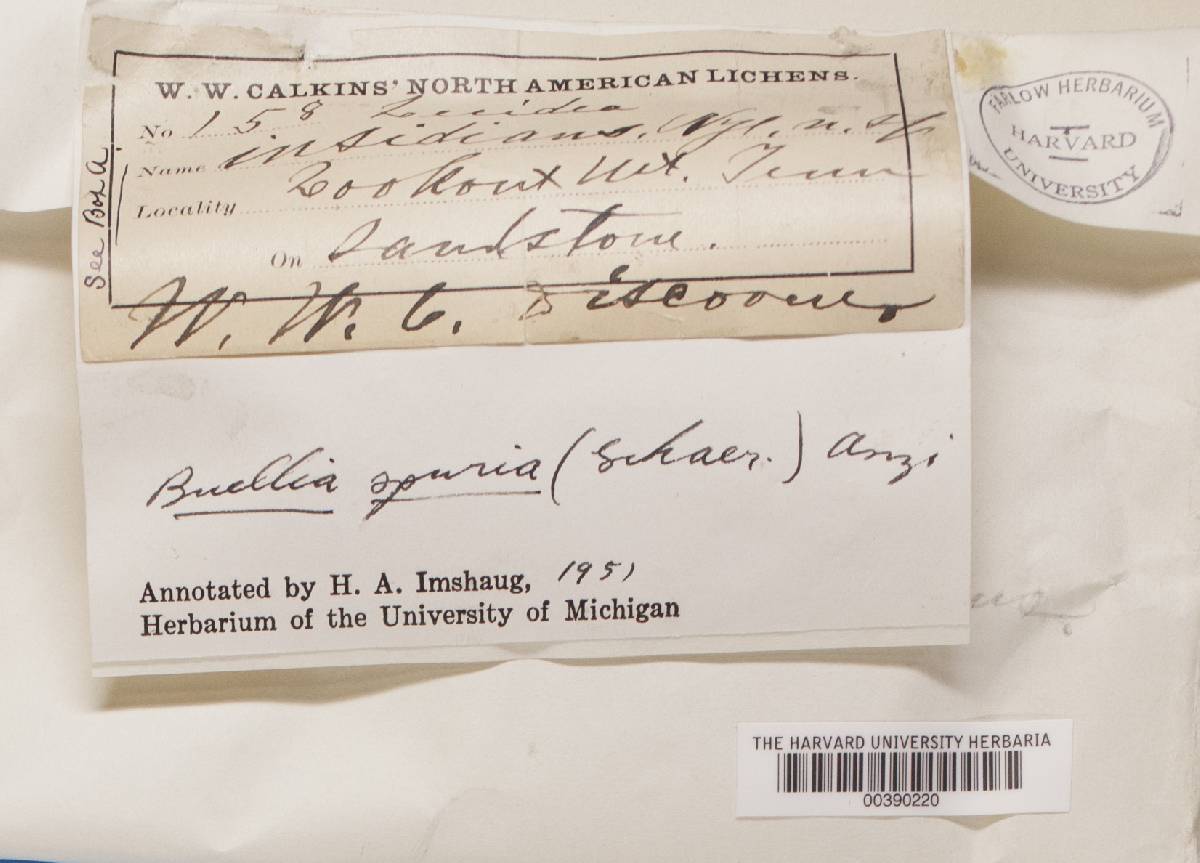 W. W. CALKINS' NORTH AMERICAN LICHENS.
No 158 Lecidea
Name insidians. Nyl. n. sp
Locality Lookout Mt. Tenn
On Sandstone.
W. W. C. Discoverer
See Box a
FARLOW HERBARIUM
HARVARD
UNIVERSITY
Buellia spuria (Schaer.) Anzi
Annotated by H. A. Imshaug, 1951
Herbarium of the University of Michigan
THE HARVARD UNIVERSITY HERBARIA
00390220